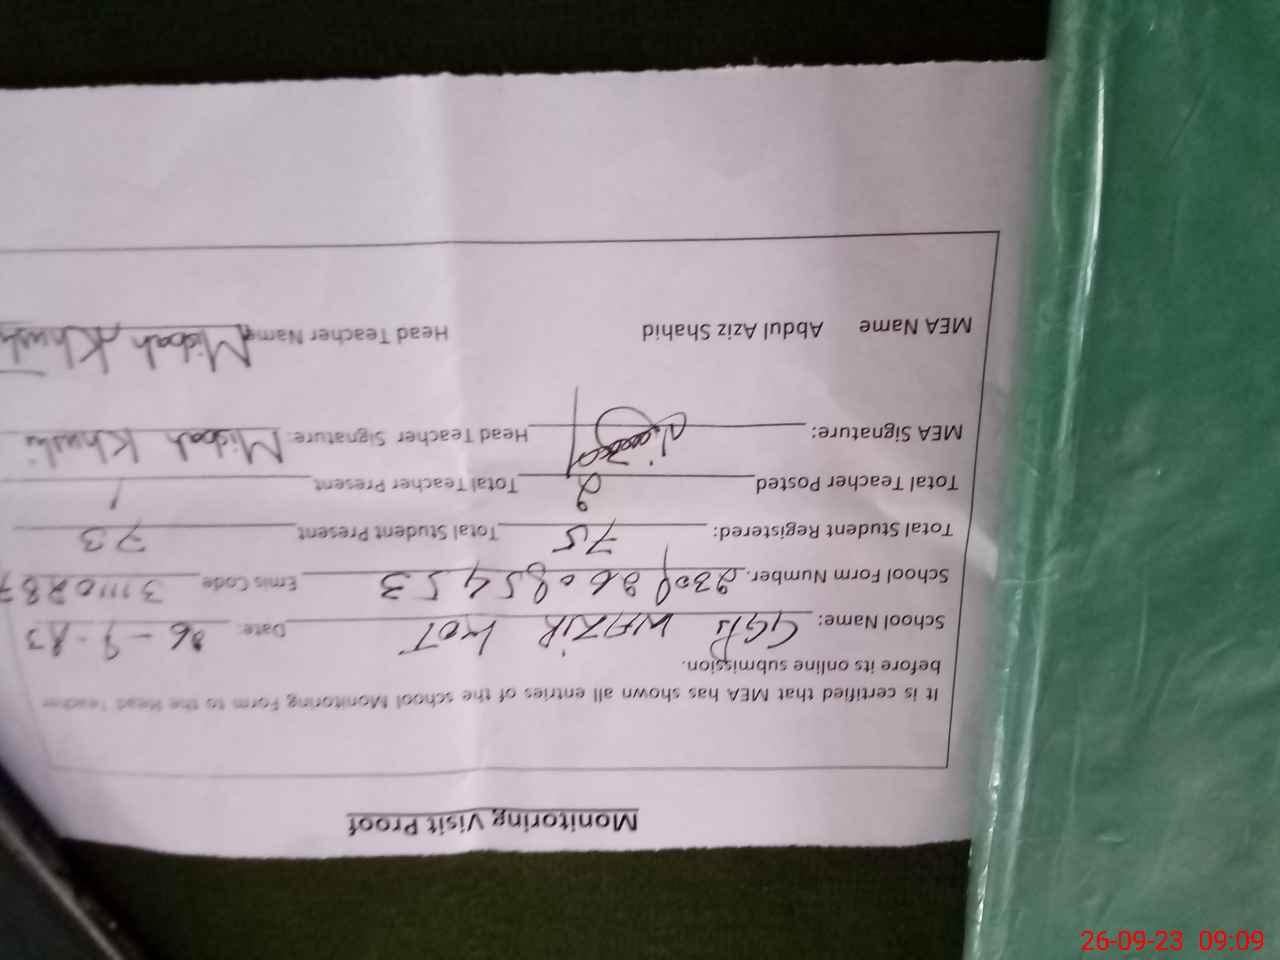 Monitoring Visit Proof
It is certified that MEA has shown all entries of the school Monitoring Form to the Head Teacher
before its online submission.
School Name: GGPS WAZIR KOT Date: 26-9-23
School Form Number. 230926085453 Emis Code 31110287
Total Student Registered: 75 Total Student Present 73
Total Teacher Posted 2 Total Teacher Present 1
MEA Signature: Head Teacher Signature: Misbah Khushi
MEA Name Abdul Aziz Shahid Head Teacher Name Misbah Khushi
26-09-23 09:09